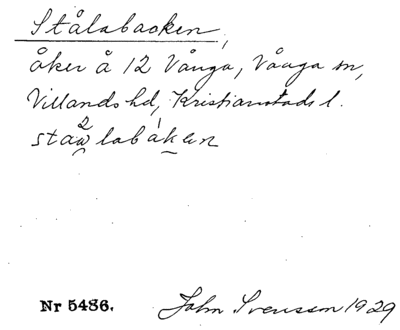 Stålabacken,
åker å 12 Vånga, Vånga sn,
Villands hd, Kristianstads l.
stau̯²labáken
Nr 5486. John Svensson 1929